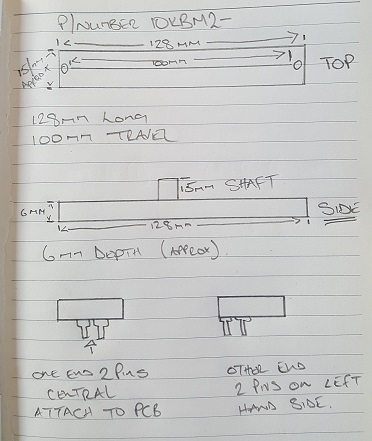 P/NUMBER 10KBM2-
128MM
100mm
15mm
APPROX
TOP
128mm Long
100mm TRAVEL
15mm SHAFT
6MM
SIDE
128mm
6mm DEPTH (APPROX).
ONE END 2 Pins
CENTRAL
ATTACH TO PCB
OTHER END
2 PINS ON LEFT
HAND SIDE.